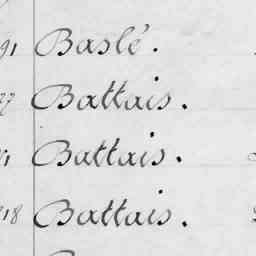 91 Baslé.
Battais.
Battais.
18 Battais.